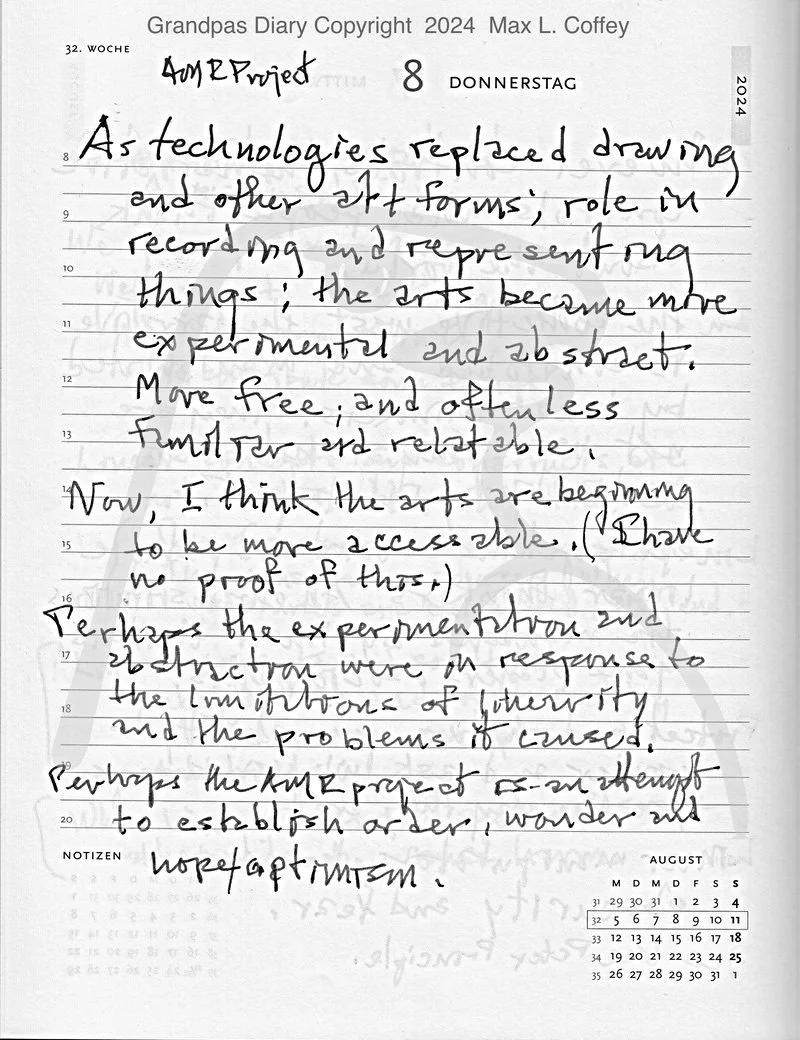 Grandpas Diary Copyright 2024 Max L. Coffey
32. WOCHE
AMR Project
8 DONNERSTAG
2024
8 As technologies replaced drawing
and other art forms; role in
9
recording and representing
10
things; the arts became more
11
experimental and abstract.
12
More free, and often less
13
familiar and relatable.
14 Now, I think the arts are beginning
15 to be more accessable. (I have
no proof of this.)
16
Perhaps the experimentation and
17 abstraction were in response to
18 the limitations of linearity
and the problems it caused.
19
Perhaps the AMR project is an attempt
20 to establish order, wonder and
NOTIZEN hope/optimism.
AUGUST
M D M D F S S
31 29 30 31 1 2 3 4
32 5 6 7 8 9 10 11
33 12 13 14 15 16 17 18
34 19 20 21 22 23 24 25
35 26 27 28 29 30 31 1